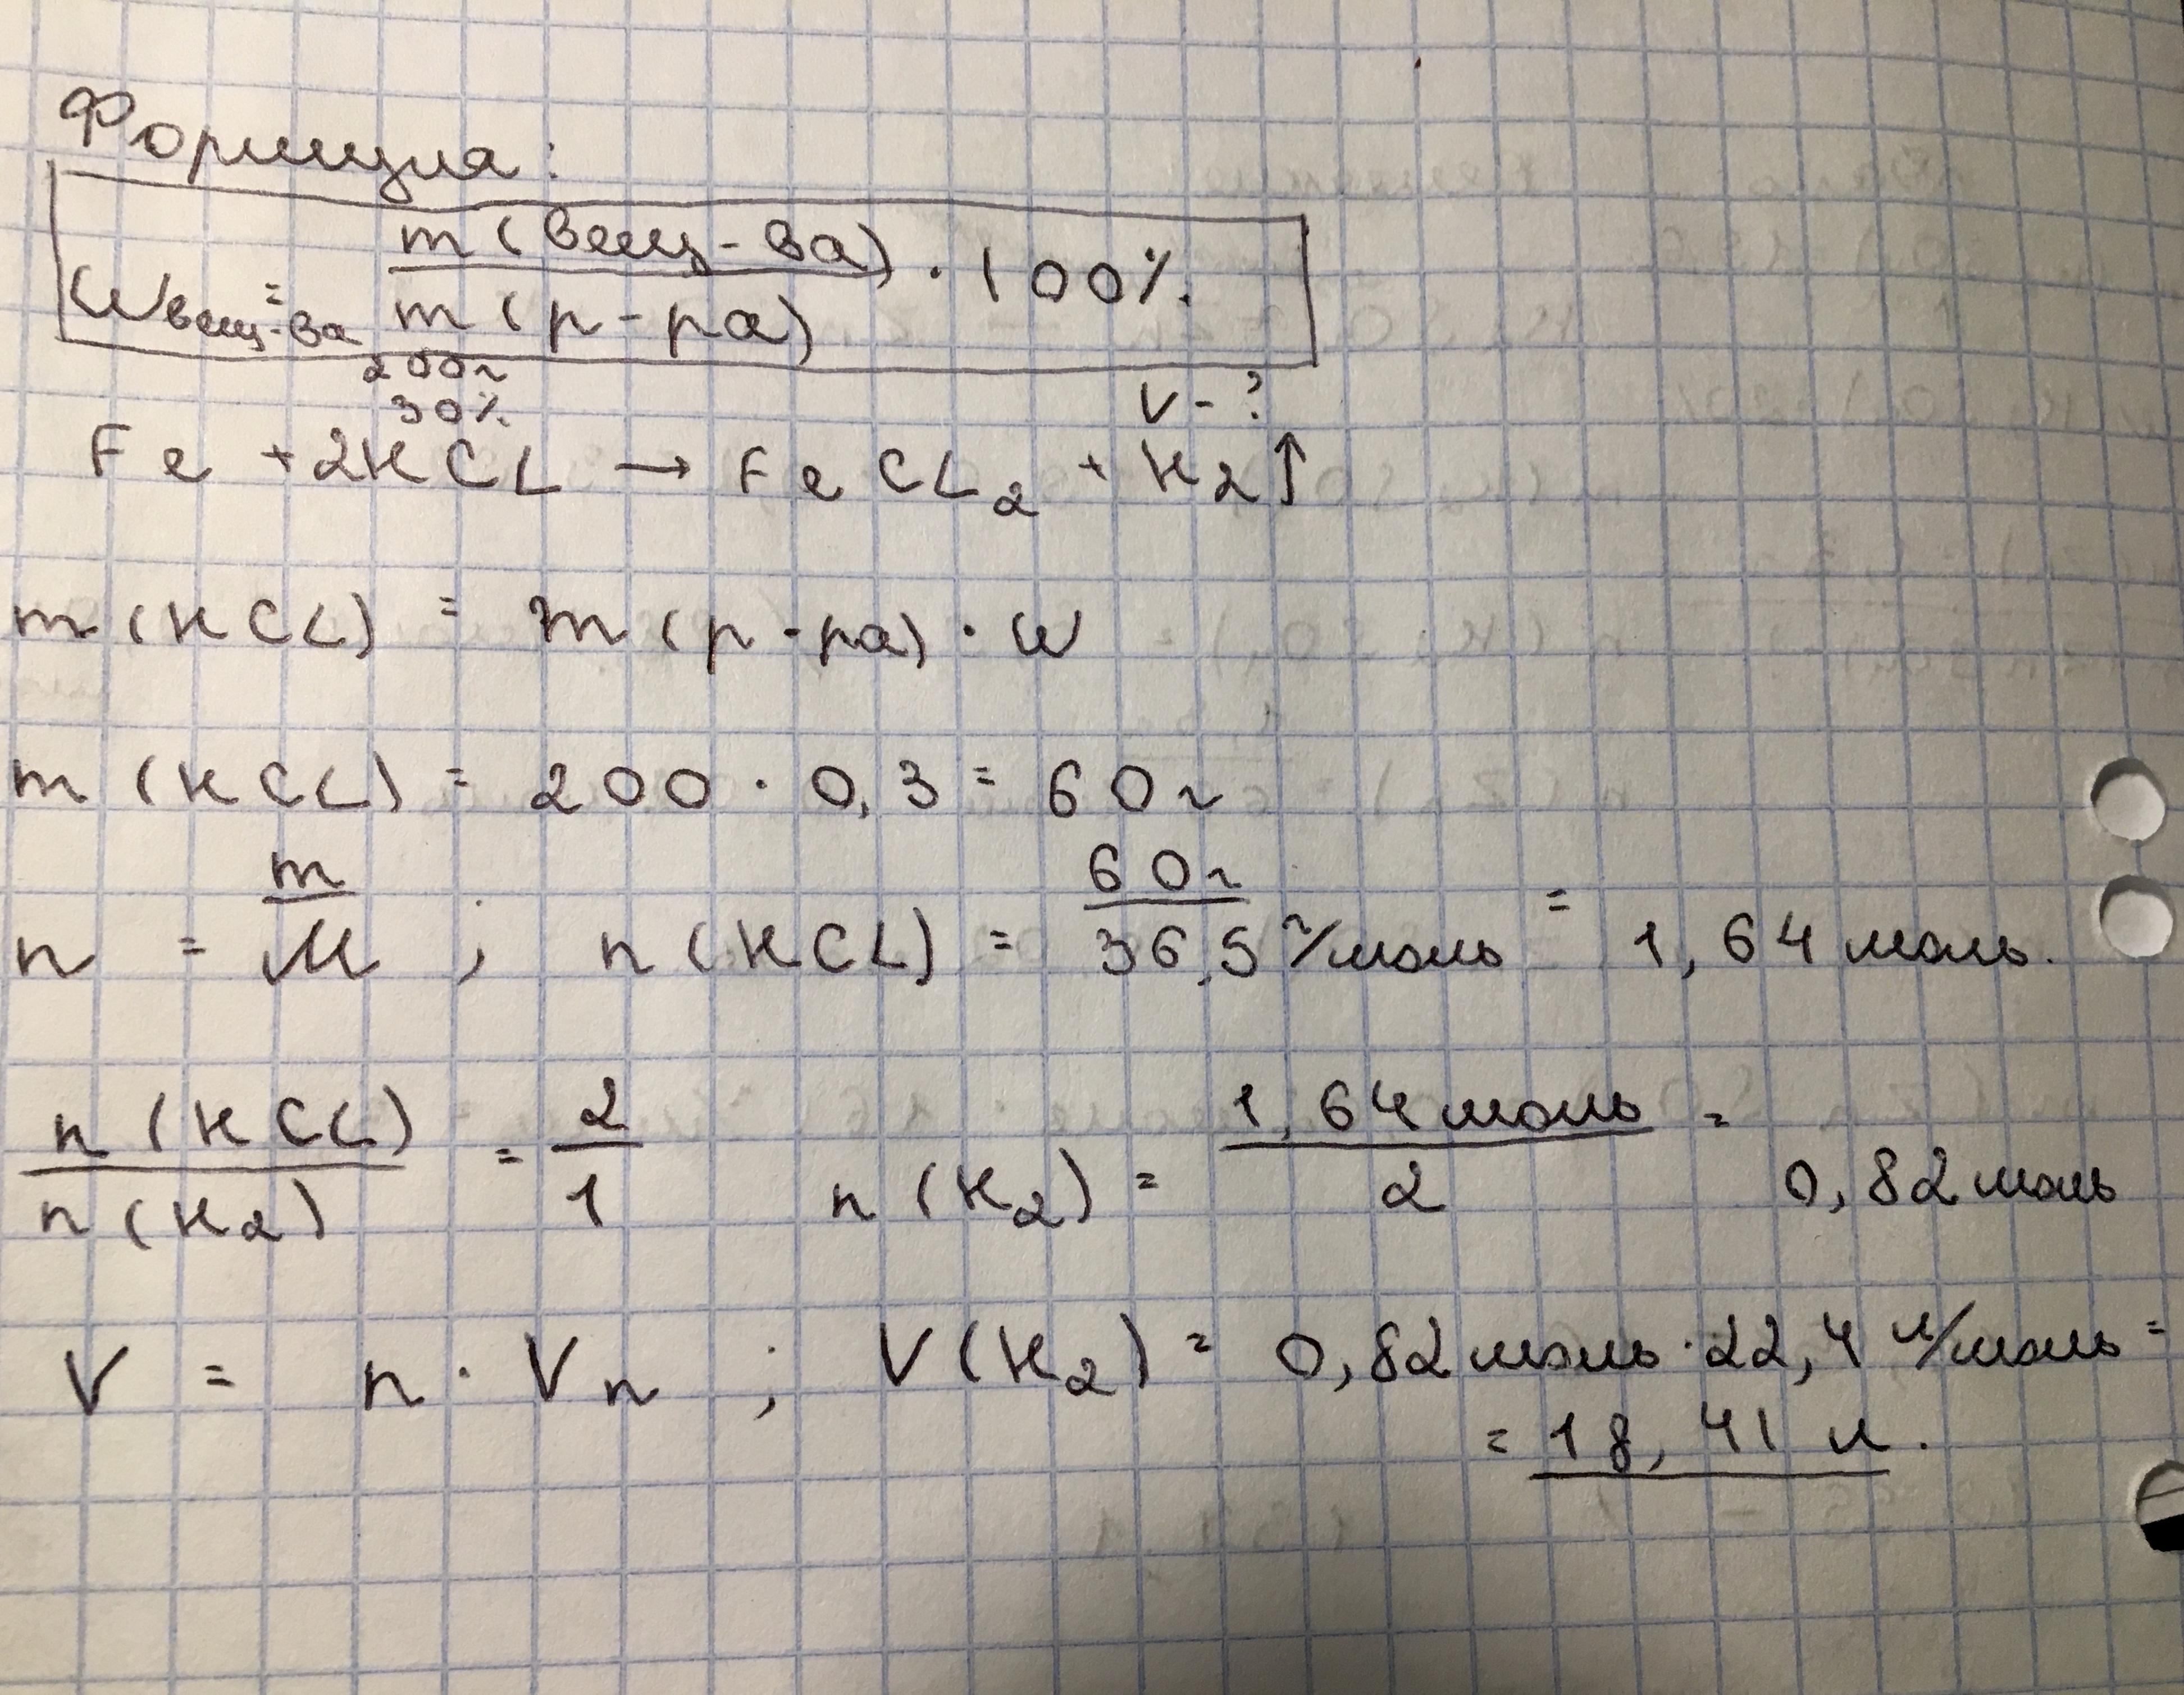 Формула:
Wвещ-ва = m (вещ-ва) / m (р-ра) · 100%
200г
30% V-?
Fe + 2HCL → FeCL₂ + H₂↑
m (HCL) = m (р-ра) · W
m (HCL) = 200 · 0,3 = 60г
n = m / M ; n (HCL) = 60г / 36,5 г/моль = 1,64 моль.
n (HCL) / n (H₂) = 2 / 1 n (H₂) = 1,64 моль / 2 = 0,82 моль
V = n · Vn ; V (H₂) = 0,82 моль · 22,4 л/моль =
= 18,41 л.